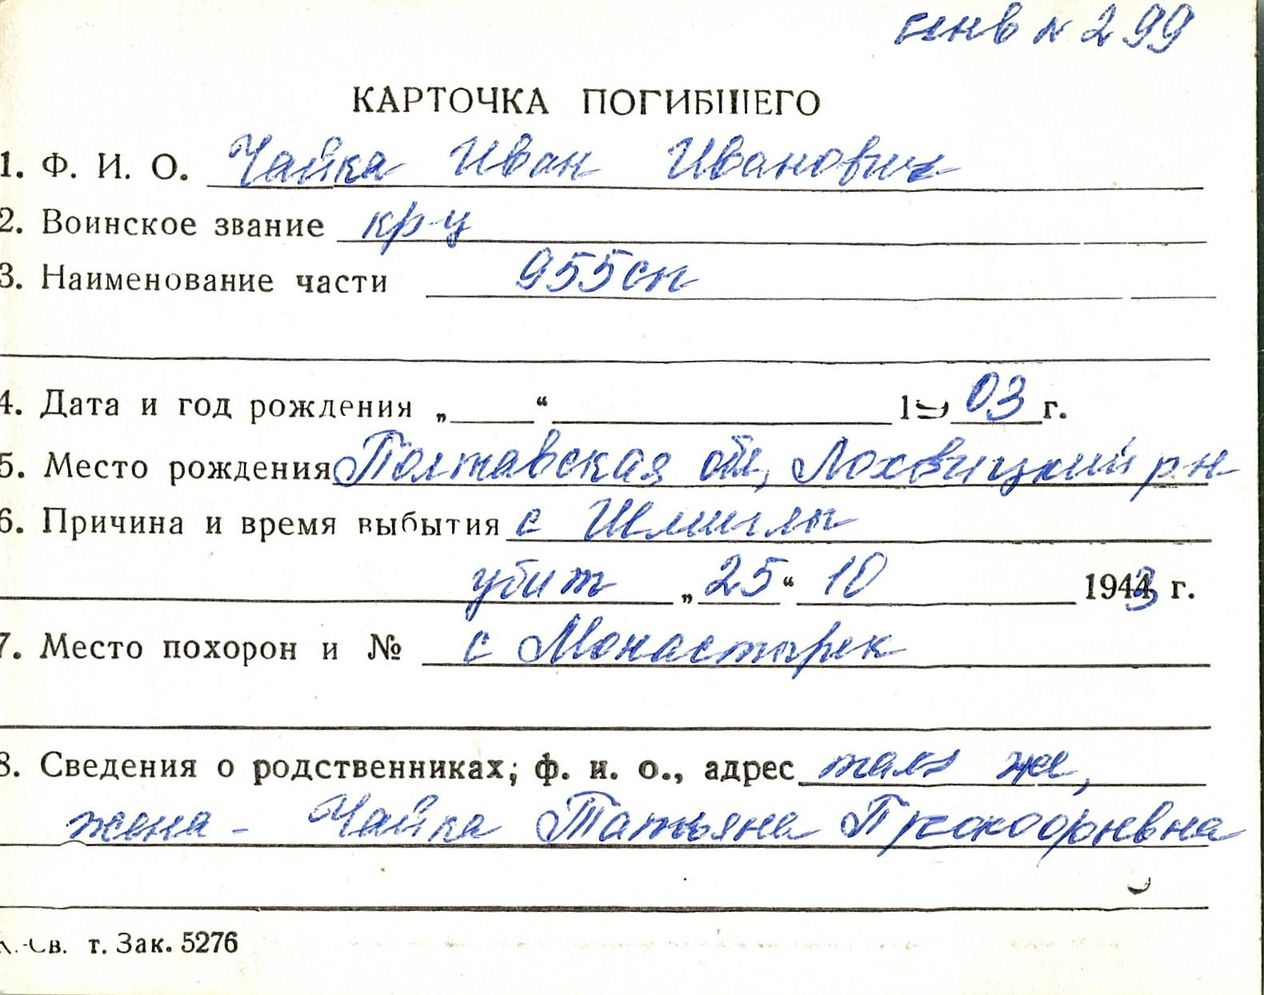 инв № 299
КАРТОЧКА ПОГИБШЕГО
1. Ф. И. О. Чайка Иван Иванович
2. Воинское звание кр-ц
3. Наименование части 955сп
4. Дата и год рождения „ “ 19 03 г.
5. Место рождения Полтавская обл, Лохвицкий р-н
6. Причина и время выбытия с
убит „ 25 “ 10 1943 г.
7. Место похорон и № с Монастырек
8. Сведения о родственниках; ф. и. о., адрес там же,
жена - Чайка Татьяна Прокофьевна
т. Зак. 5276